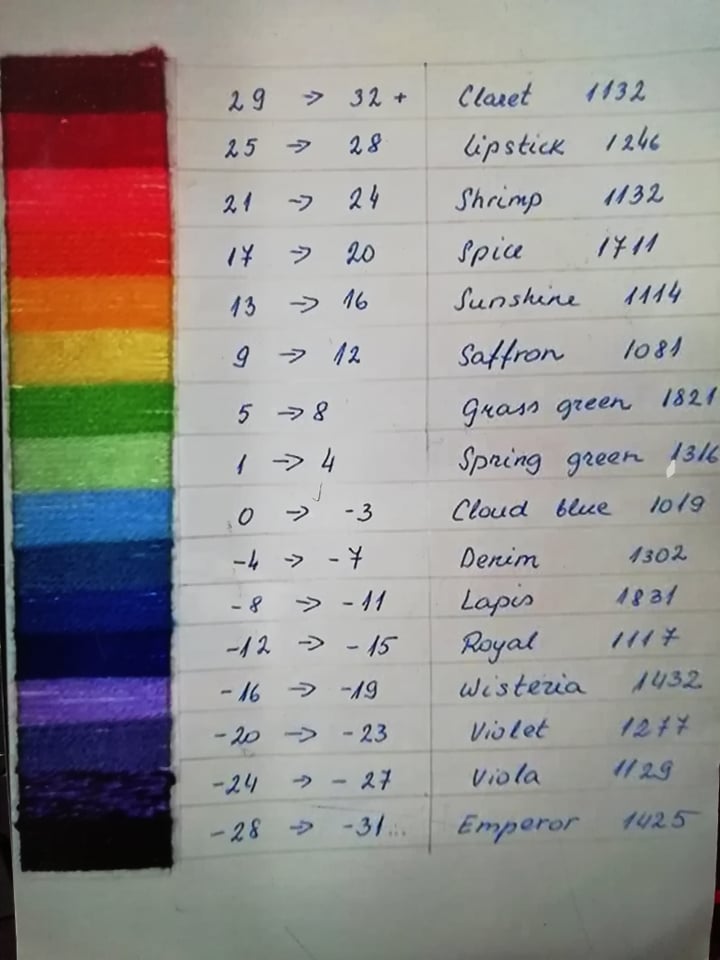 29 → 32 + Claret 1132
25 → 28 Lipstick 1246
21 → 24 Shrimp 1132
17 → 20 Spice 1711
13 → 16 Sunshine 1114
9 → 12 Saffron 1081
5 → 8 Grass green 1821
1 → 4 Spring green 1316
0 → -3 Cloud blue 1019
-4 → -7 Denim 1302
-8 → -11 Lapis 1831
-12 → -15 Royal 1117
-16 → -19 Wisteria 1432
-20 → -23 Violet 1277
-24 → -27 Viola 1129
-28 → -31... Emperor 1425